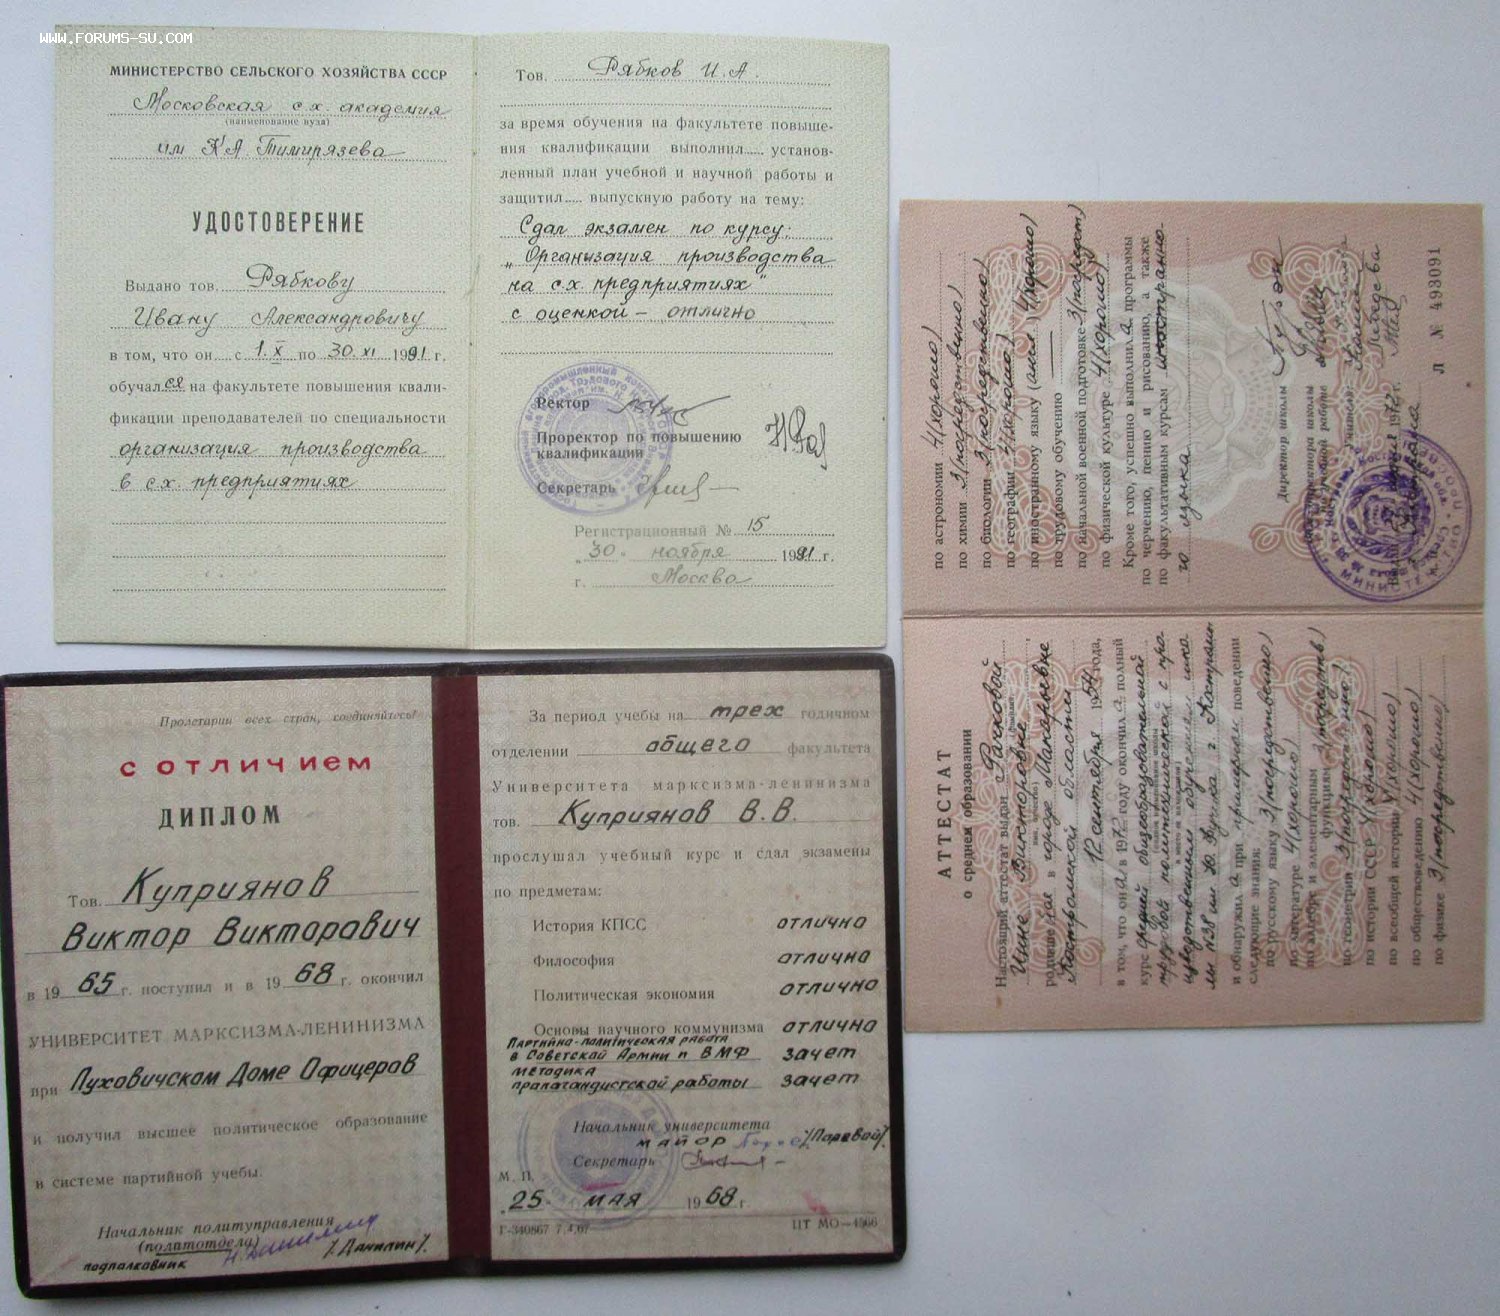 WWW.FORUMS-SU.COM
МИНИСТЕРСТВО СЕЛЬСКОГО ХОЗЯЙСТВА СССР
Московская с.х. академия
(наименование вуза)
им К.А. Тимирязева
УДОСТОВЕРЕНИЕ
Выдано тов. Рябкову
Ивану Александровичу
в том, что он с 1.X по 30.XI 1991 г.
обучался на факультете повышения квали-
фикации преподавателей по специальности
организация производства
в с.х. предприятиях
Тов. Рябков И.А.
за время обучения на факультете повыше-
ния квалификации выполнил установ-
ленный план учебной и научной работы и
защитил выпускную работу на тему:
Сдал экзамен по курсу:
„Организация производства
на с.х. предприятиях"
с оценкой – отлично
Ректор
Проректор по повышению
квалификации
Секретарь
Регистрационный № 15
„30" ноября 1991 г.
г. Москва
Пролетарии всех стран, соединяйтесь!
С ОТЛИЧИЕМ
ДИПЛОМ
Тов. Куприянов
Виктор Викторович
в 1965 г. поступил и в 1968 г. окончил
УНИВЕРСИТЕТ МАРКСИЗМА-ЛЕНИНИЗМА
при Пуховичском Доме Офицеров
и получил высшее политическое образование
в системе партийной учебы.
Начальник политуправления
(политотдела)
подполковник /Данилин/.
За период учебы на трех годичном
отделении общего факультета
Университета марксизма-ленинизма
тов. Куприянов В.В.
прослушал учебный курс и сдал экзамены
по предметам:
История КПСС отлично
Философия отлично
Политическая экономия отлично
Основы научного коммунизма отлично
Партийно-политическая работа
в Советской Армии и ВМФ зачет
методика
пропагандистской работы зачет
Начальник университета
майор /Паревой/.
Секретарь
М. П.
„25" мая 1968 г.
Г-340867 7.4.67 ЦТ МО—4566
АТТЕСТАТ
о среднем образовании
Настоящий аттестат выдан Рачковой
Инне Викторовне
родившейся в городе Мантурове
Костромской области
12 сентября 1954 года,
в том, что она в 1972 году окончила полный
курс средней общеобразовательной
трудовой политехнической с про-
изводственным обучением шко-
лы №38 г. Костромы
и обнаружила при примерном поведении
следующие знания:
по русскому языку 3 (посредственно)
по литературе 4 (хорошо)
по алгебре и элементарным
функциям 3 (посредств.)
по геометрии 3 (посредственно)
по истории СССР 4 (хорошо)
по всеобщей истории 4 (хорошо)
по обществоведению 4 (хорошо)
по физике 3 (посредственно)
по астрономии 4 (хорошо)
по химии 3 (посредственно)
по биологии 3 (посредственно)
по географии 4 (хорошо)
по иностранному языку (англ.) 4 (хорошо)
по трудовому обучению —
по начальной военной подготовке 3 (посредст)
по физической культуре 4 (хорошо)
Кроме того, успешно выполнила программы
по черчению, пению и рисованию, а также
по факультативным курсам иностранно-
го языка
Директор школы
Заместитель директора школы
по учебной работе
Учителя:
1972 г.
Л № 493091